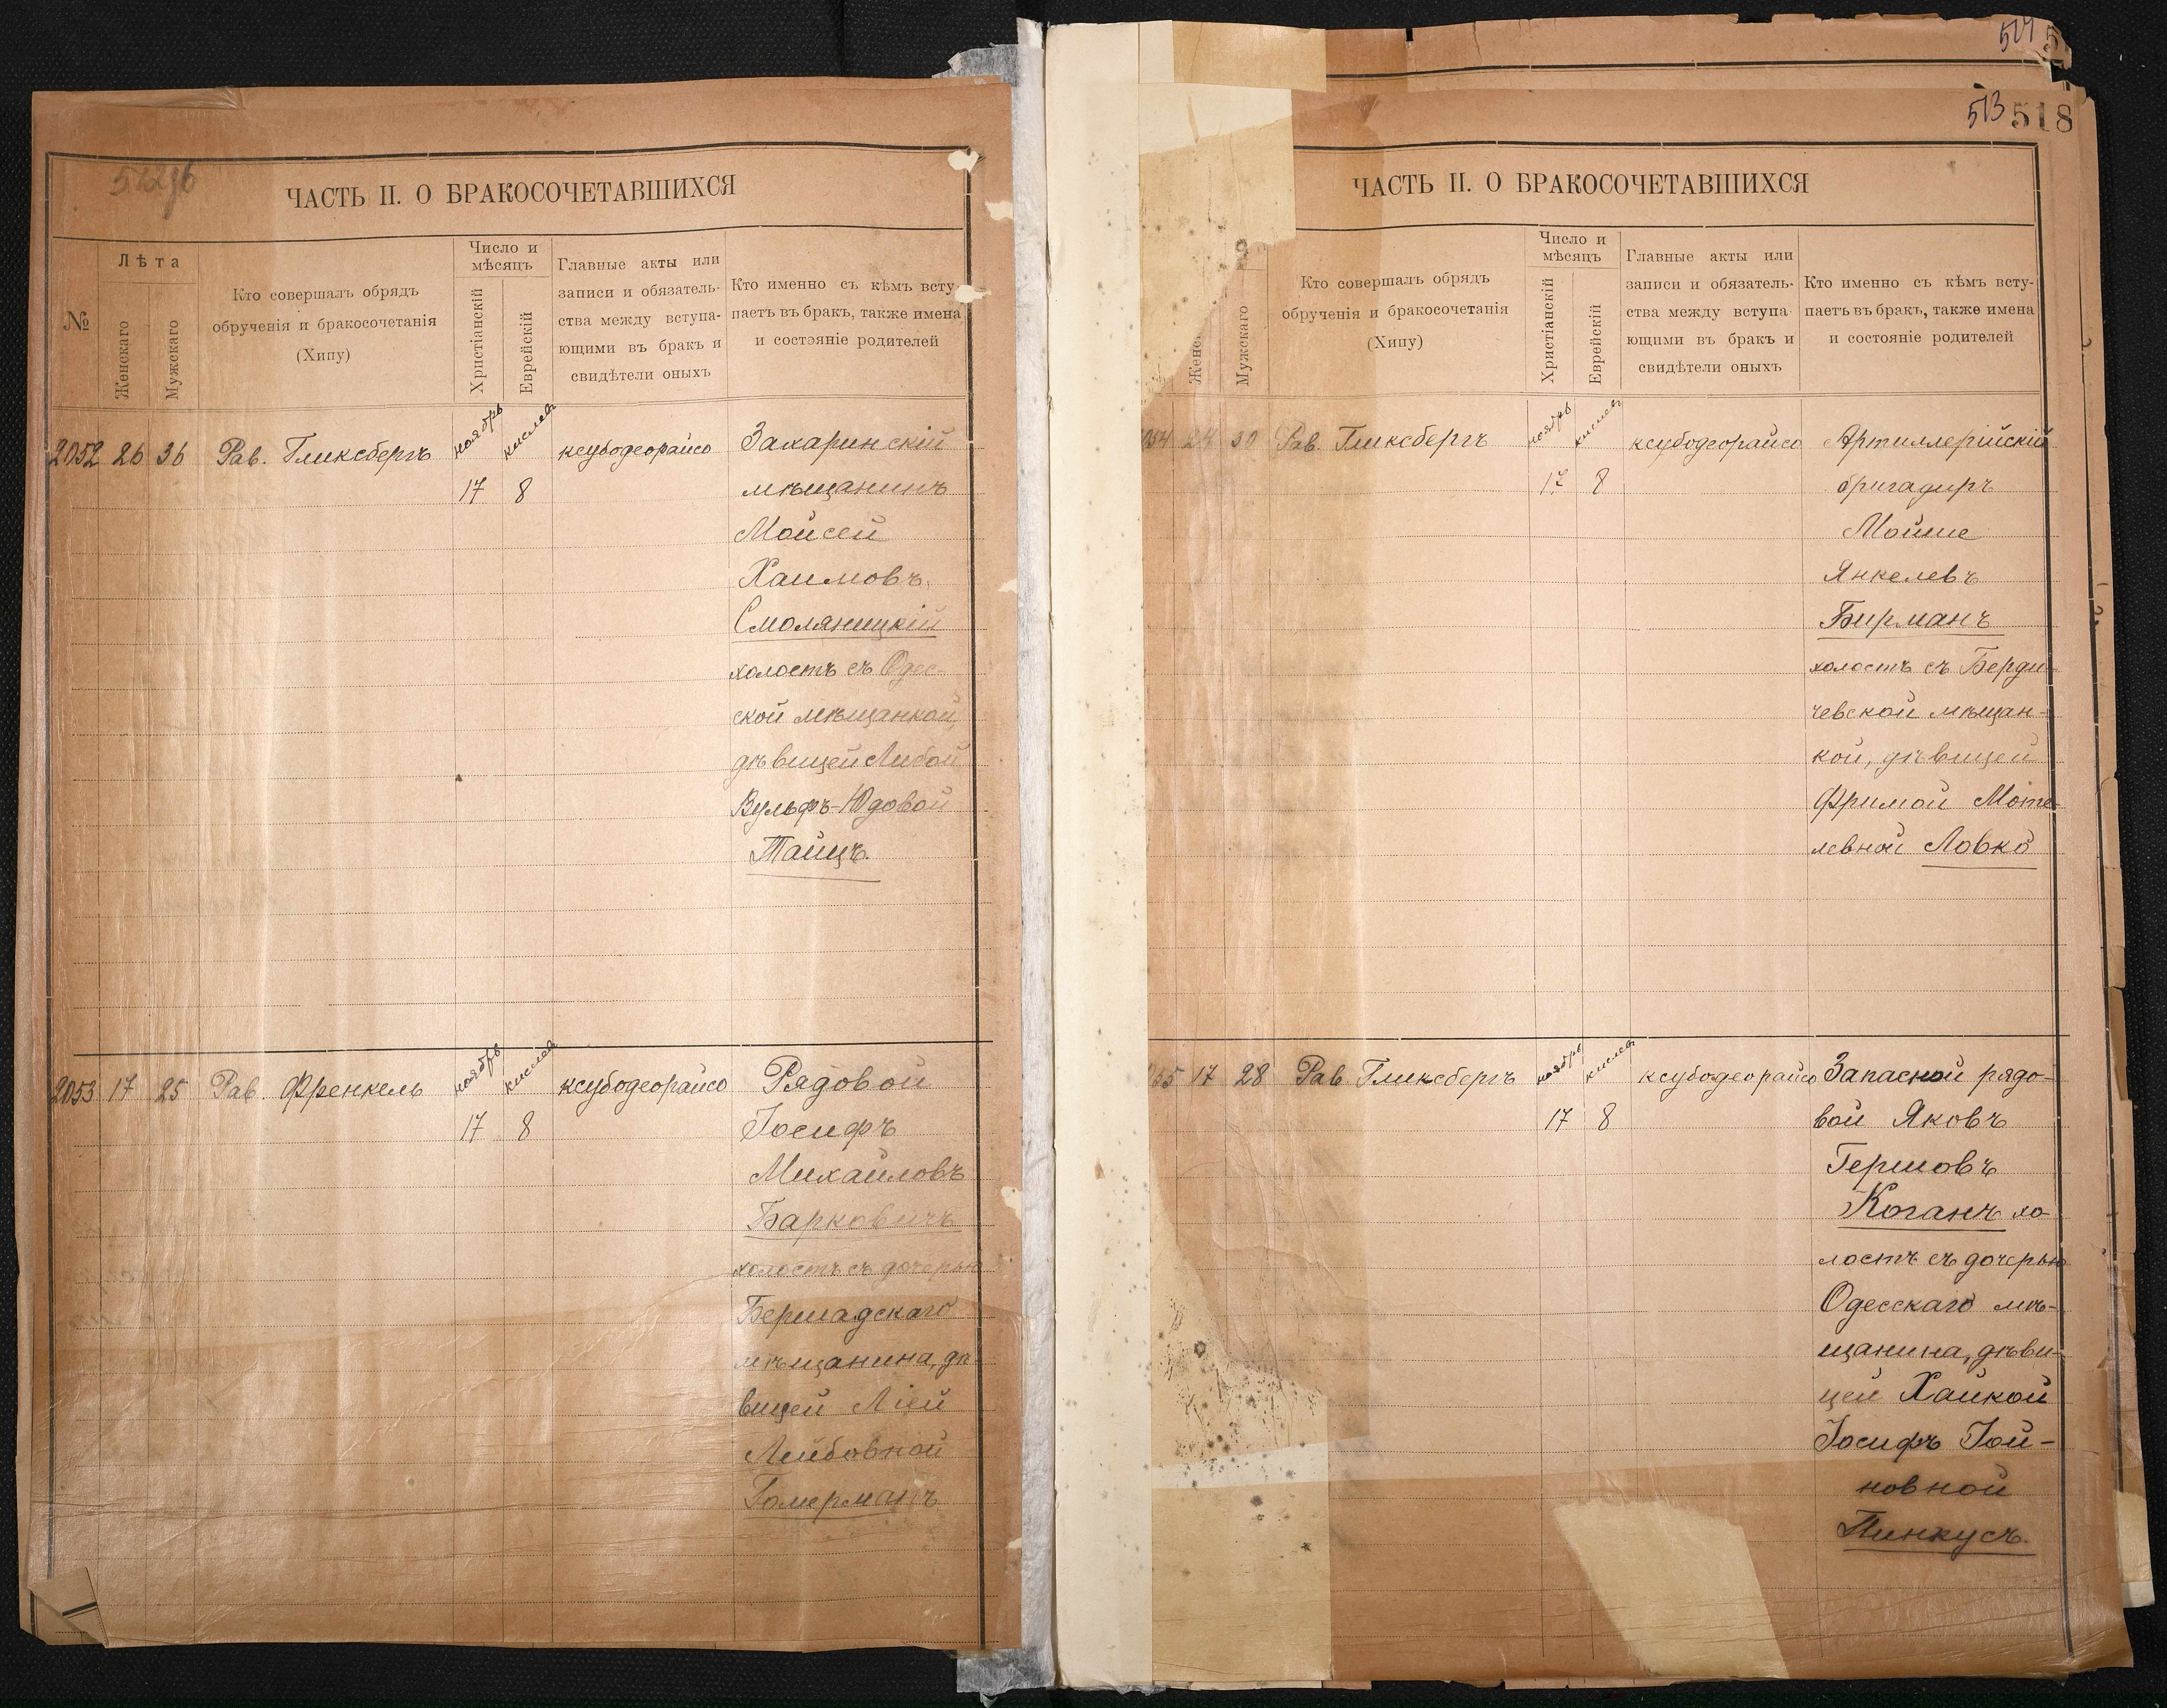 ЧАСТЬ II. О БРАКОСОЧЕТАВШИХСЯ
№
Лѣта
Женскаго
Мужскаго
Кто совершалъ обрядъ
обрученія и бракосочетанія
(Хипу)
Число и
мѣсяцъ
Христіанскій
Еврейскій
Главные акты или
записи и обязатель-
ства между вступа-
ющими въ бракъ и
свидѣтели оныхъ
Кто именно съ кѣмъ всту-
паетъ въ бракъ, также имена
и состояніе родителей
2052 26 36 Рав. Гликсбергъ ноябрь кислев ксубодеорайсо Захаринскій
17 8 мѣщанинъ
Мойсей
Хаимовъ
Смоляницкій
холостъ съ Одес-
ской мѣщанкой,
дѣвицей Либой
Вульфъ-Юдовой
Тайцъ.
2053 17 25 Рав. Френкель ноябрь кислев ксубодеорайсо Рядовой
17 8 Іосифъ
Михайловъ
Барковичъ
холостъ съ дочерью
Бершадскаго
мѣщанина, дѣ-
вицей Ліей
Лейбовной
Гомерманъ
514
513 518
ЧАСТЬ II. О БРАКОСОЧЕТАВШИХСЯ
Мужскаго
Кто совершалъ обрядъ
обрученія и бракосочетанія
(Хипу)
Число и
мѣсяцъ
Христіанскій
Еврейскій
Главные акты или
записи и обязатель-
ства между вступа-
ющими въ бракъ и
свидѣтели оныхъ
Кто именно съ кѣмъ всту-
паетъ въ бракъ, также имена
и состояніе родителей
054 24 30 Рав. Гликсбергъ ноябрь кислев ксубодеорайсо Артиллерійскій
17 8 бригадиръ
Мойше
Янкелевъ
Бирманъ
холостъ съ Берди-
чевской мѣщан-
кой, дѣвицей
Фримой Моте-
левной Ловко
055 17 28 Рав. Гликсбергъ ноябрь кислев ксубодеорайсо Запасной рядо-
17 8 вой Яковъ
Гершовъ
Коганъ хо-
лостъ съ дочерью
Одесскаго мѣ-
щанина, дѣви-
цей Хайкой
Іосифъ Іой-
новной
Пинкусъ.